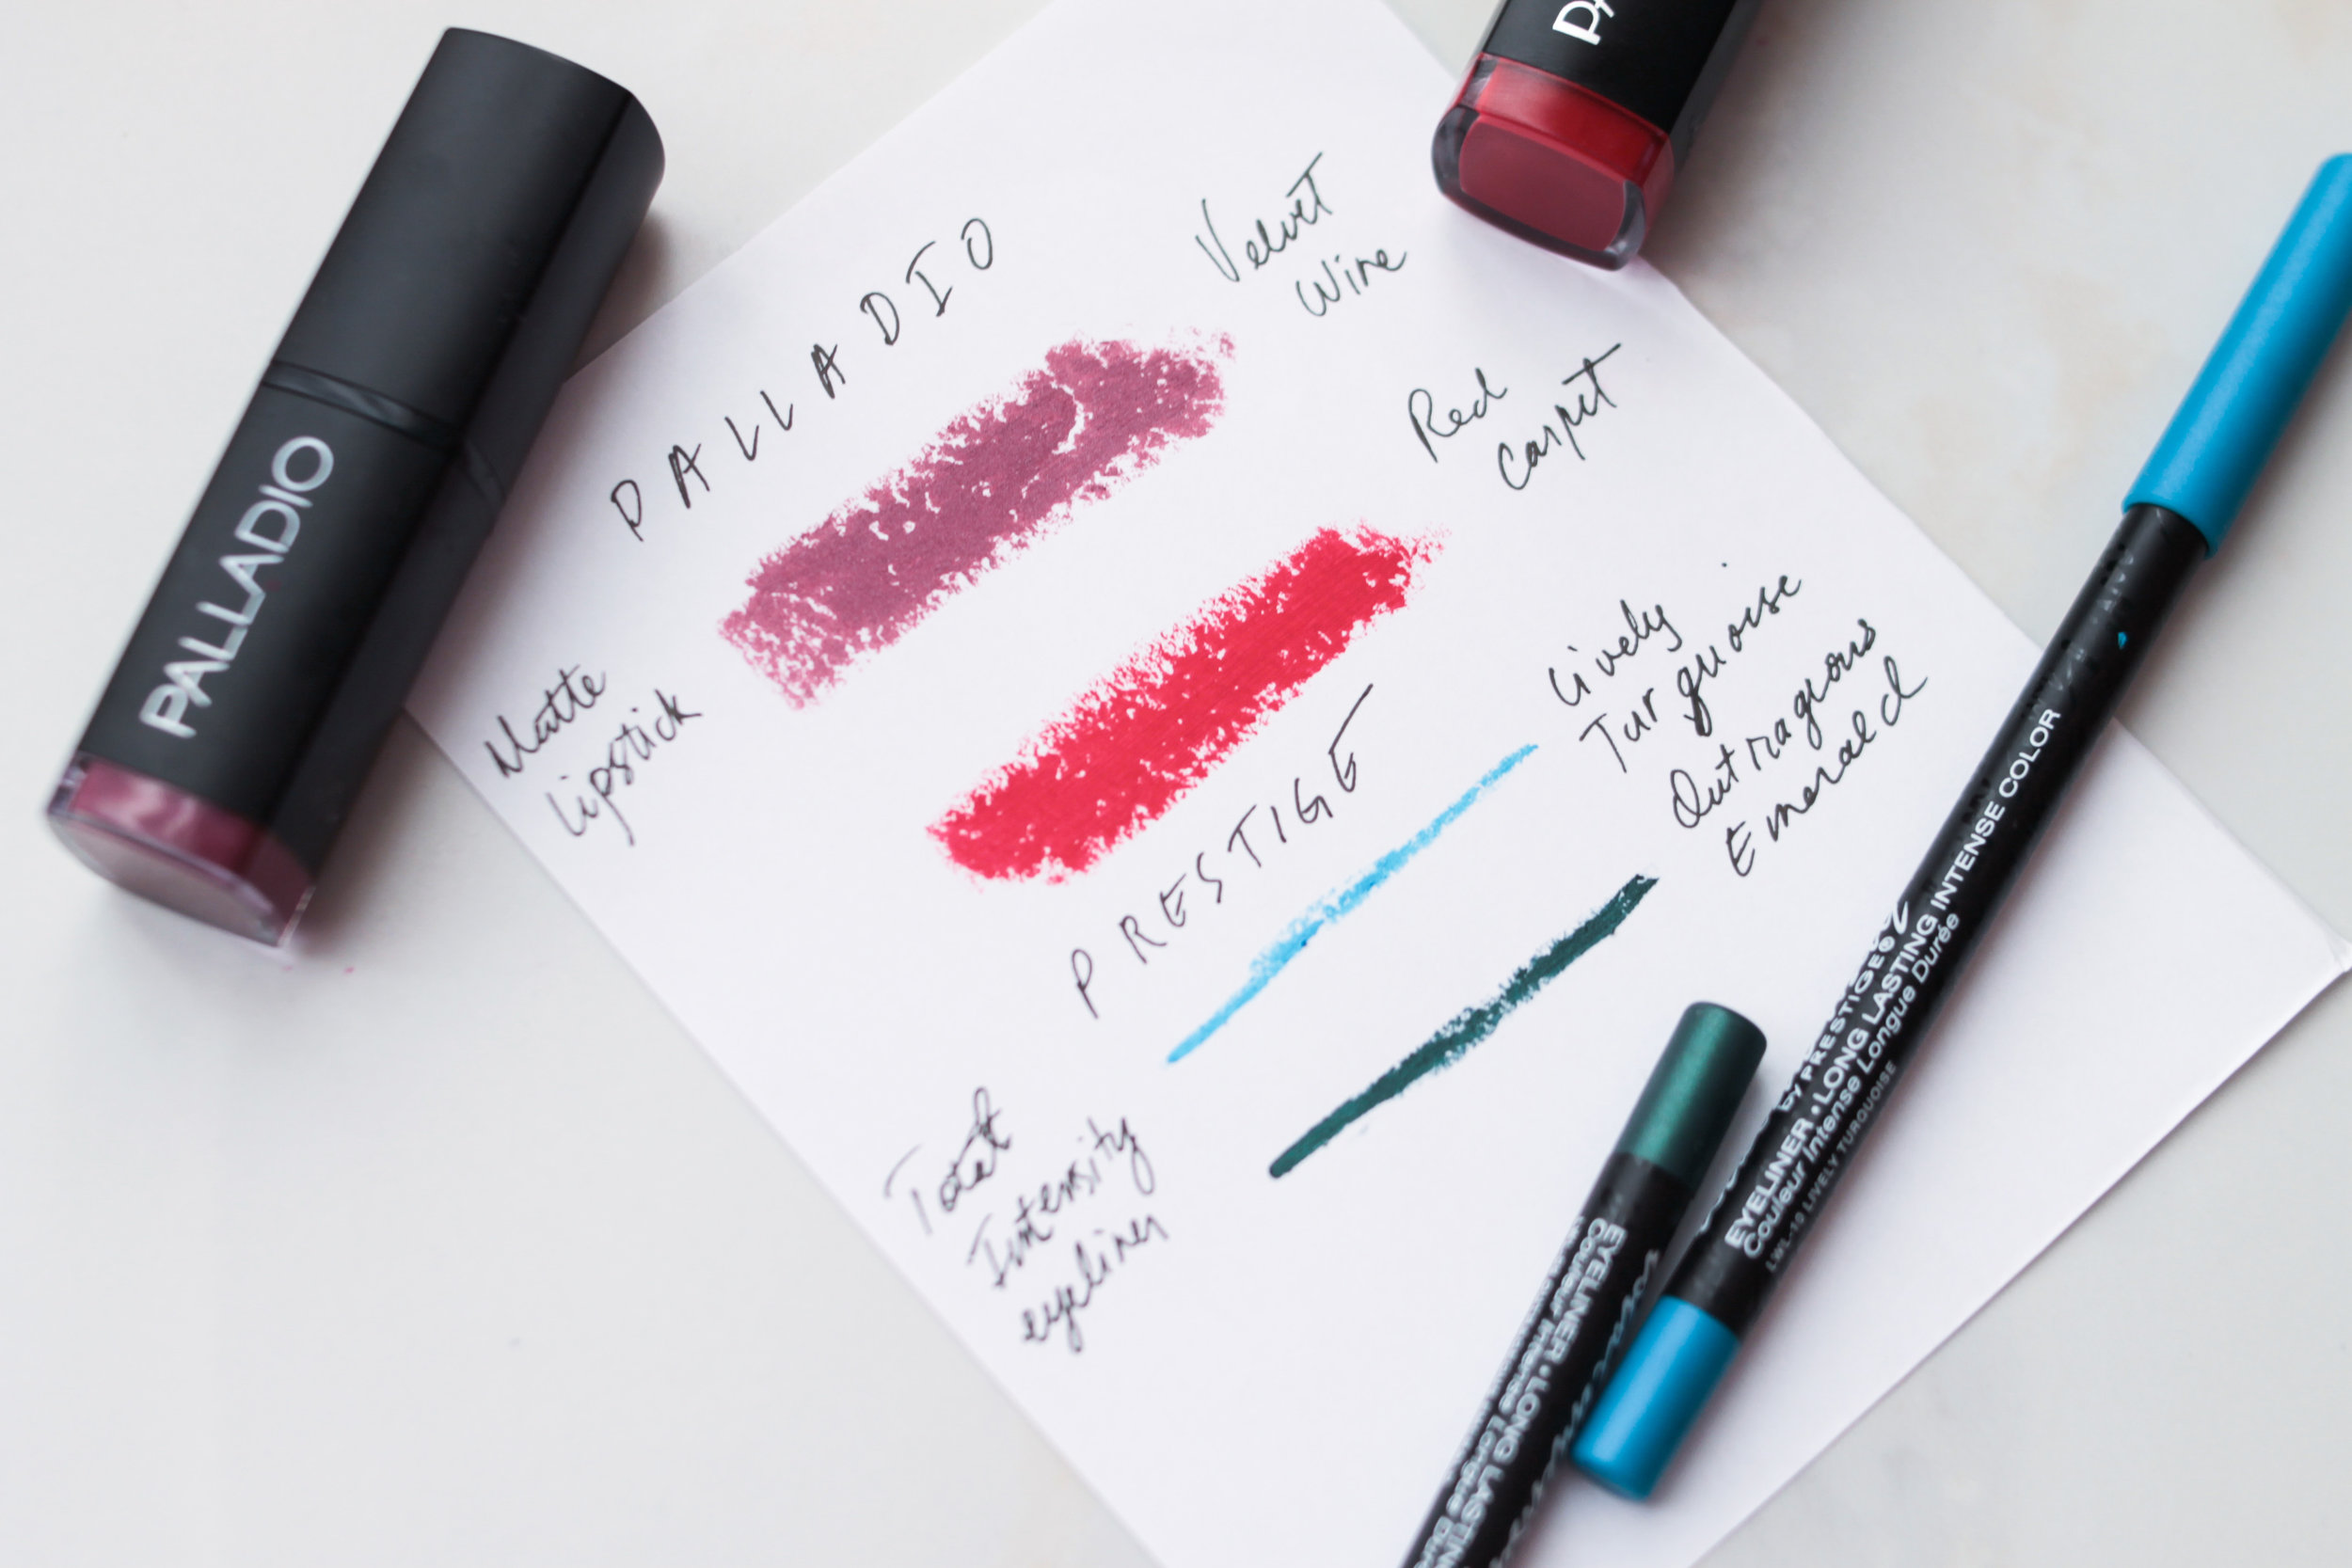 PALLADIO
PALLADIO
Velvet
Wine
Red
Carpet
Matte
Lipstick
PRESTIGE
Lively
Turquoise
Outrageous
Emerald
Total
Intensity
eyeliner
by PRESTIGE®
EYELINER • LONG LASTING INTENSE COLOR
Couleur Intense Longue Durée
LWL-10 LIVELY TURQUOISE
EYELINER • LONG LASTIN